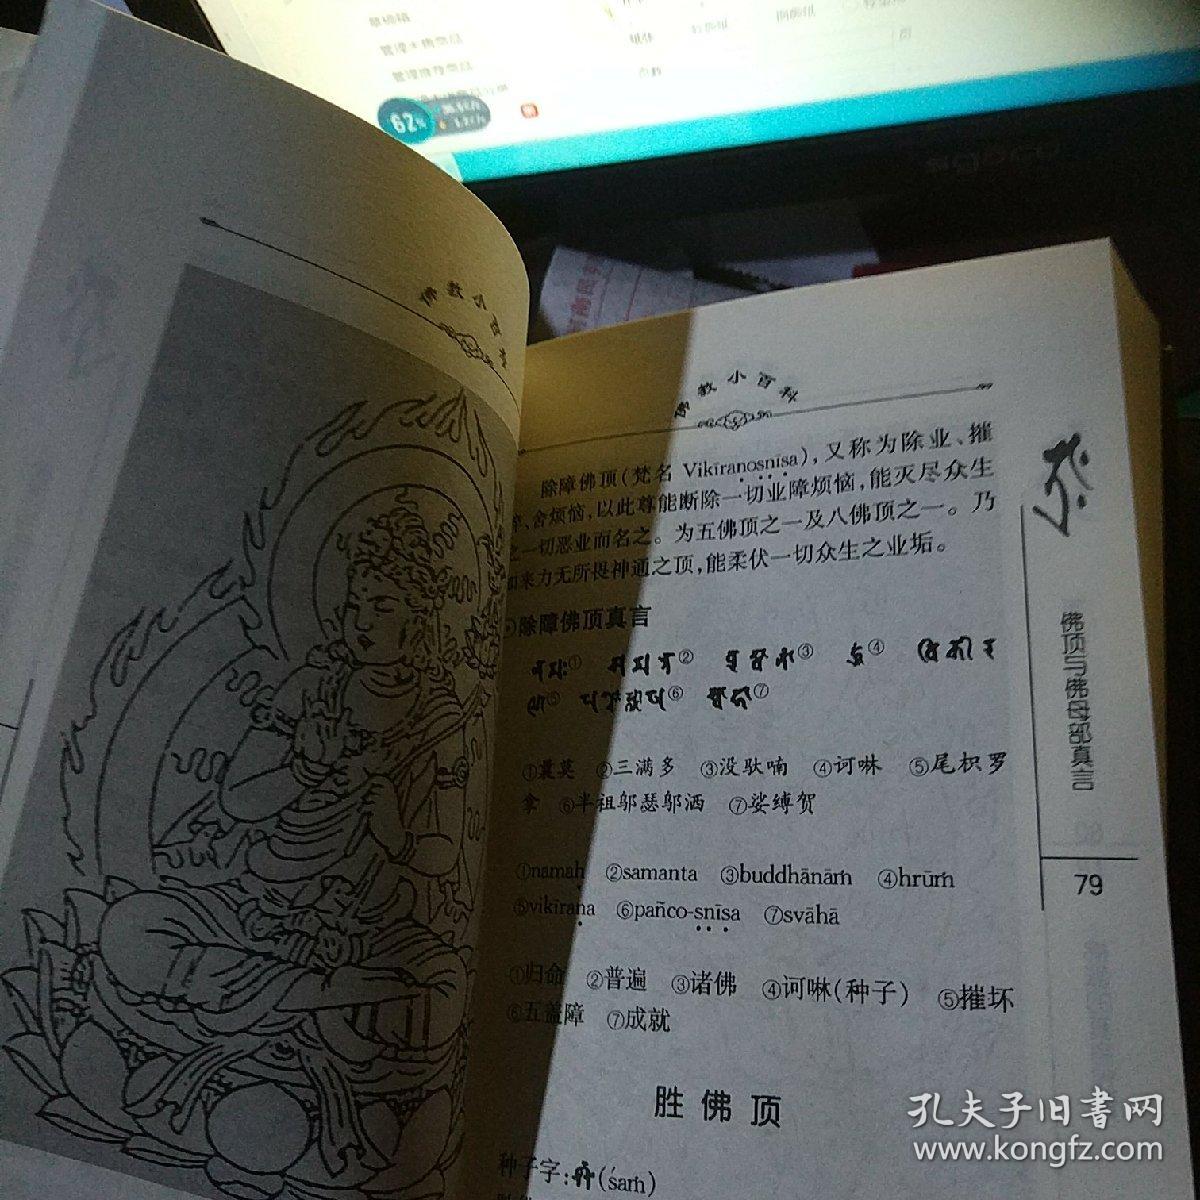 管理推荐商品
62%
佛教小百科
佛教小百科
除障佛顶(梵名 Vikīranosnīsa),又称为除业、摧
碎、舍烦恼,以此尊能断除一切业障烦恼,能灭尽众生
之一切恶业而名之。为五佛顶之一及八佛顶之一。乃
如来力无所畏神通之顶,能柔伏一切众生之业垢。
除障佛顶真言
①曩莫 ②三满多 ③没驮喃 ④诃啉 ⑤尾枳罗
拿 ⑥半祖邬瑟邬洒 ⑦娑缚贺
①namaḥ ②samanta ③buddhānāṁ ④hrūṁ
⑤vikīraṇa ⑥pañco-ṣṇīṣa ⑦svāhā
①归命 ②普遍 ③诸佛 ④诃啉(种子) ⑤摧坏
⑥五盖障 ⑦成就
胜佛顶
种子字: (śaṁ)
佛顶与佛母部真言
79
孔夫子旧书网
www.kongfz.com